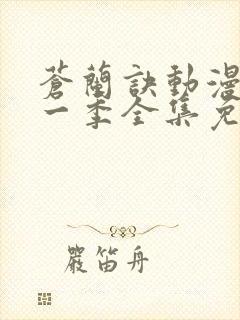 蒼蘭訣動漫
一季全集免
嚴笛舟